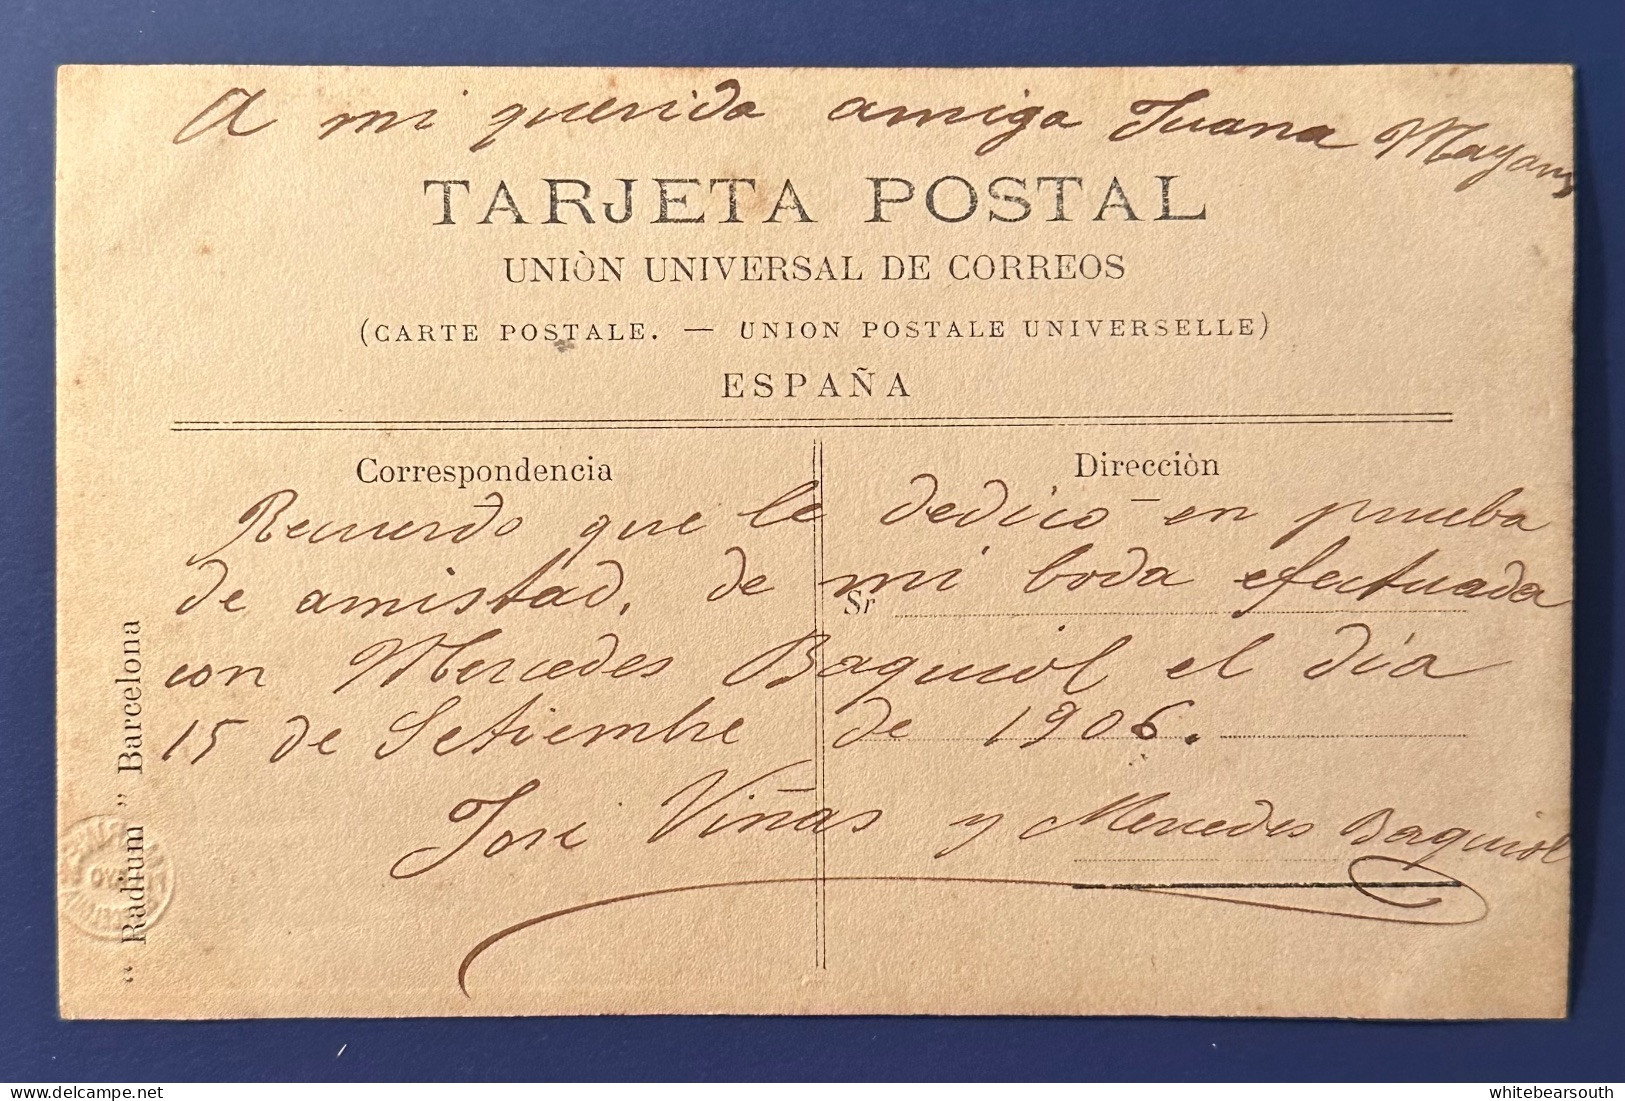 A mi querida amiga Juana Mayans
TARJETA POSTAL
UNIÒN UNIVERSAL DE CORREOS
(CARTE POSTALE. — UNION POSTALE UNIVERSELLE)
ESPAÑA
Correspondencia
Direcciòn
Recuerdo que le dedico en prueba
de amistad, de mi boda efectuada
Sr
con Mercedes Baquiol el día
15 de Setiembre de 1906.
José Viñas y Mercedes Baquiol
“ Radium ” Barcelona
whitebearsouth